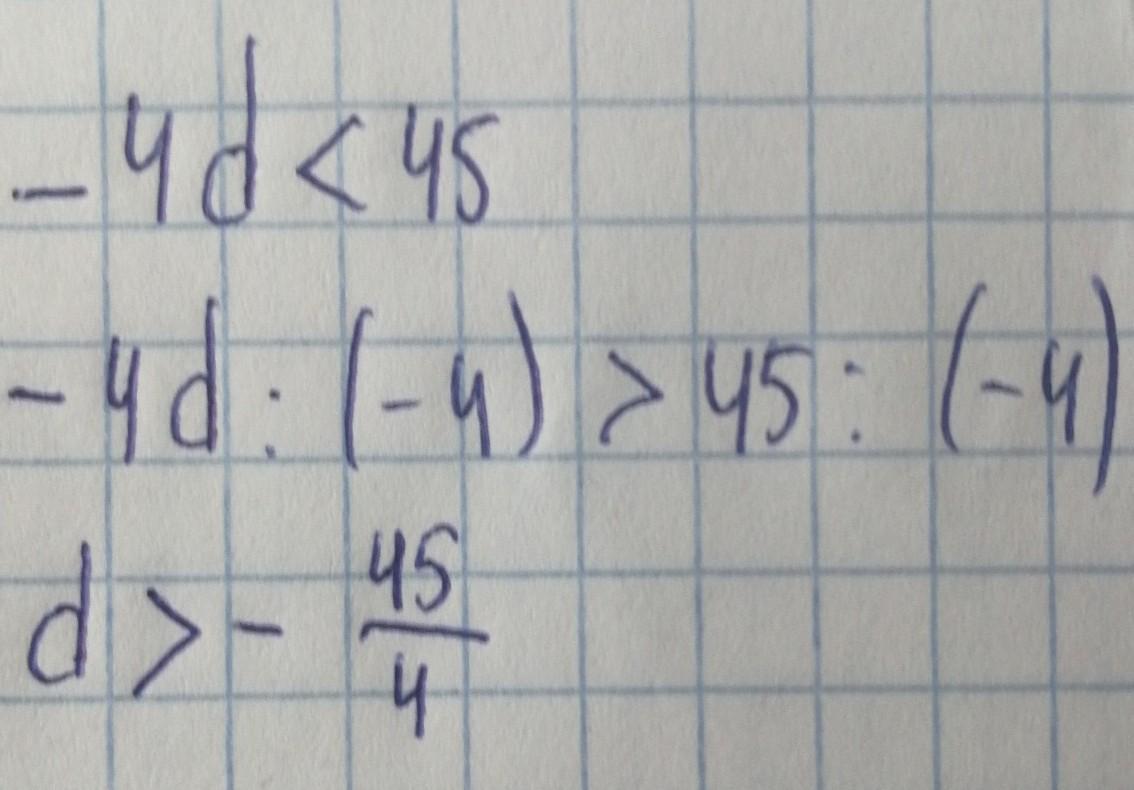 -4d < 45
-4d : (-4) > 45 : (-4)
d > - 45/4